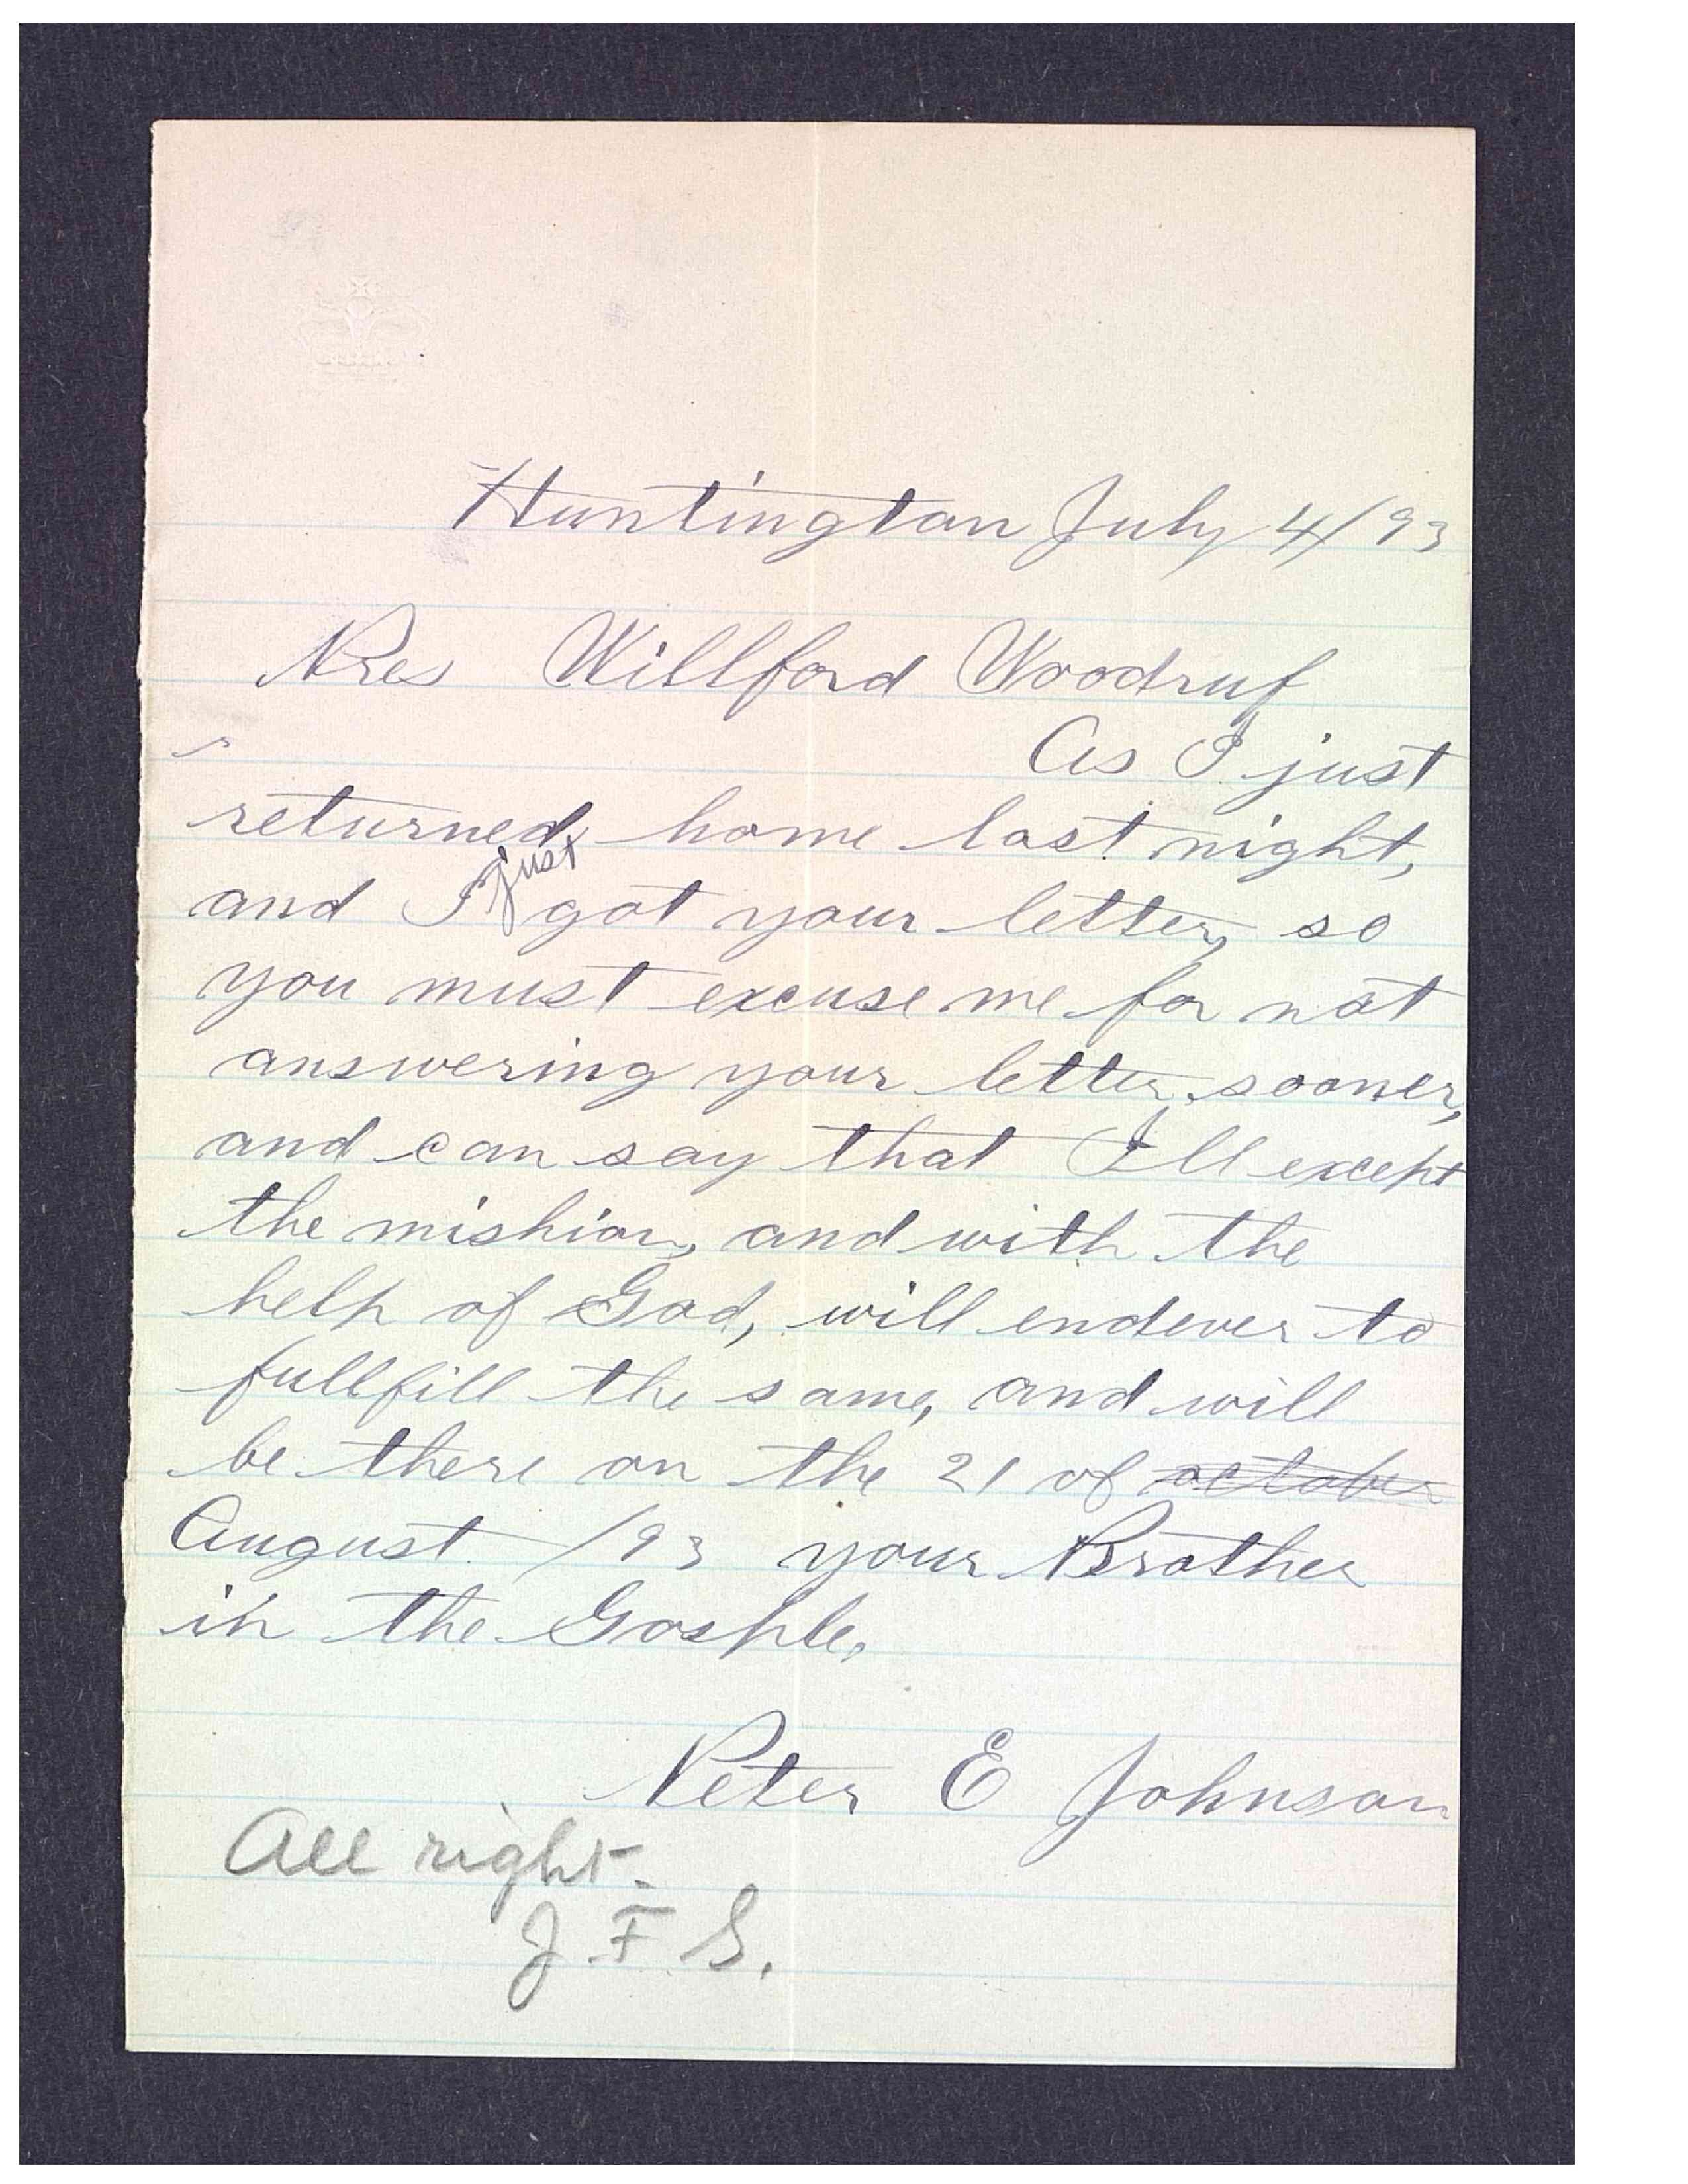 Huntington July 4/93
Pres Willford Woodruf
As I just
returned, home last night,
and I just got your letter, so
you must excuse me for not
answering your letter sooner,
and can say that I'll except
the mishion, and with the
help of God, will endever to
fullfill the same, and will
be there on the 21 of october
August /93 your Brother
in the Gosple,
Peter E Johnson
All right.
J. F. S.